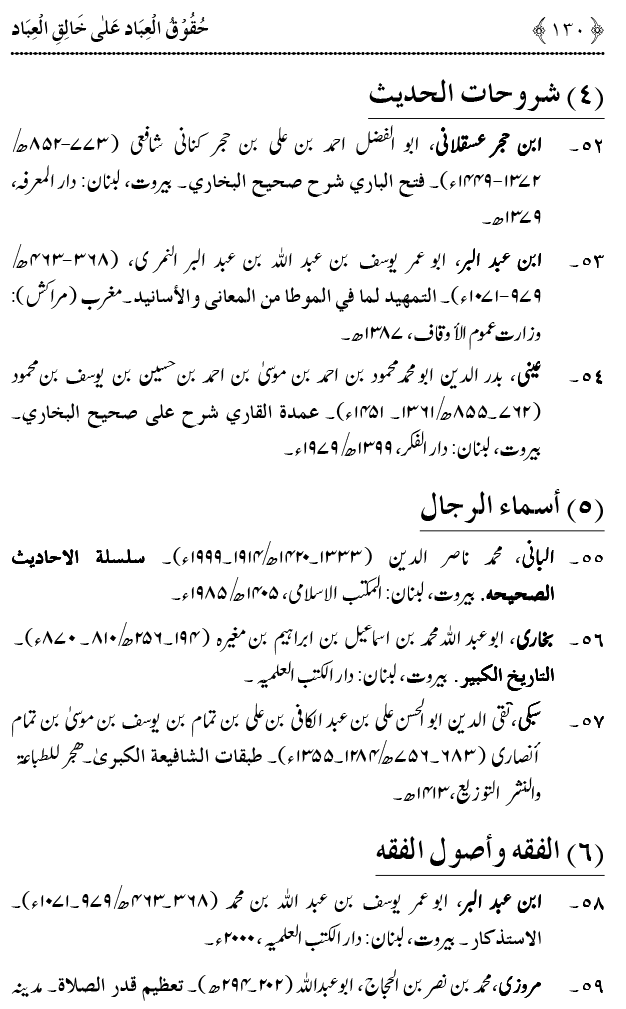 ﴿١٣٠﴾ حُقُوْقُ الْعِبَاد عَلٰی خَالِقِ الْعِبَاد
(٤) شروحات الحدیث
٥٢۔ ابن حجر عسقلانی، ابو الفضل احمد بن علی بن حجر کنانی شافعی (۷۷۳-۸۵۲ھ/
۱۳۷۲-۱۴۴۹ء)۔ فتح الباري شرح صحیح البخاري۔ بیروت، لبنان: دار المعرفہ،
۱۳۷۹ھ۔
٥٣۔ ابن عبد البر، ابو عمر یوسف بن عبد اللہ بن عبد البر النمری، (۳۶۸-۴۶۳ھ/
۹۷۹-۱۰۷۱ء)۔ التمهید لما في الموطا من المعانی والأسانید۔مغرب (مراکش):
وزارت عموم الأوقاف، ۱۳۸۷ھ۔
٥٤۔ عینی، بدر الدین ابو محمد محمود بن احمد بن موسیٰ بن احمد بن حسین بن یوسف بن محمود
(۷۶۲۔۸۵۵ھ/۱۳۶۱۔ ۱۴۵۱ء)۔ عمدة القاري شرح علی صحیح البخاري۔
بیروت، لبنان: دار الفکر، ۱۳۹۹ھ/۱۹۷۹ء۔
(٥) أسماء الرجال
٥٥۔ البانی، محمد ناصر الدین (۱۳۳۳۔۱۴۲۰ھ/۱۹۱۴۔۱۹۹۹ء)۔ سلسلة الاحادیث
الصحیحه. بیروت، لبنان: المکتب الاسلامی، ۱۴۰۵ھ/۱۹۸۵ء۔
٥٦۔ بخاری، ابو عبد اللہ محمد بن اسماعیل بن ابراہیم بن مغیرہ (۱۹۴۔۲۵۶ھ/۸۱۰۔ ۸۷۰ء)۔
التاریخ الکبیر. بیروت، لبنان: دار الکتب العلمیہ ۔
٥٧۔ سبکی، تقی الدین ابو الحسن علی بن عبد الکافی بن علی بن تمام بن یوسف بن موسیٰ بن تمام
أنصاری (۶۸۳۔۷۵۶ھ/۱۲۸۴۔۱۳۵۵ء)۔ طبقات الشافیعة الکبریٰ۔ هجر للطباعة
والنشر التوزیع،۱۴۱۳ھ۔
(٦) الفقه وأصول الفقه
٥٨۔ ابن عبد البر، ابو عمر یوسف بن عبد اللہ بن محمد (۳۶۸۔۴۶۳ھ/۹۷۹۔۱۰۷۱ء)۔
الاستذکار ۔ بیروت، لبنان: دار الکتب العلمیہ ،۲۰۰۰ء۔
٥٩۔ مروزی، محمد بن نصر بن الحجاج، ابو عبداللہ (۲۰۲۔۲۹۴ھ)۔ تعظیم قدر الصلاة۔ مدینہ